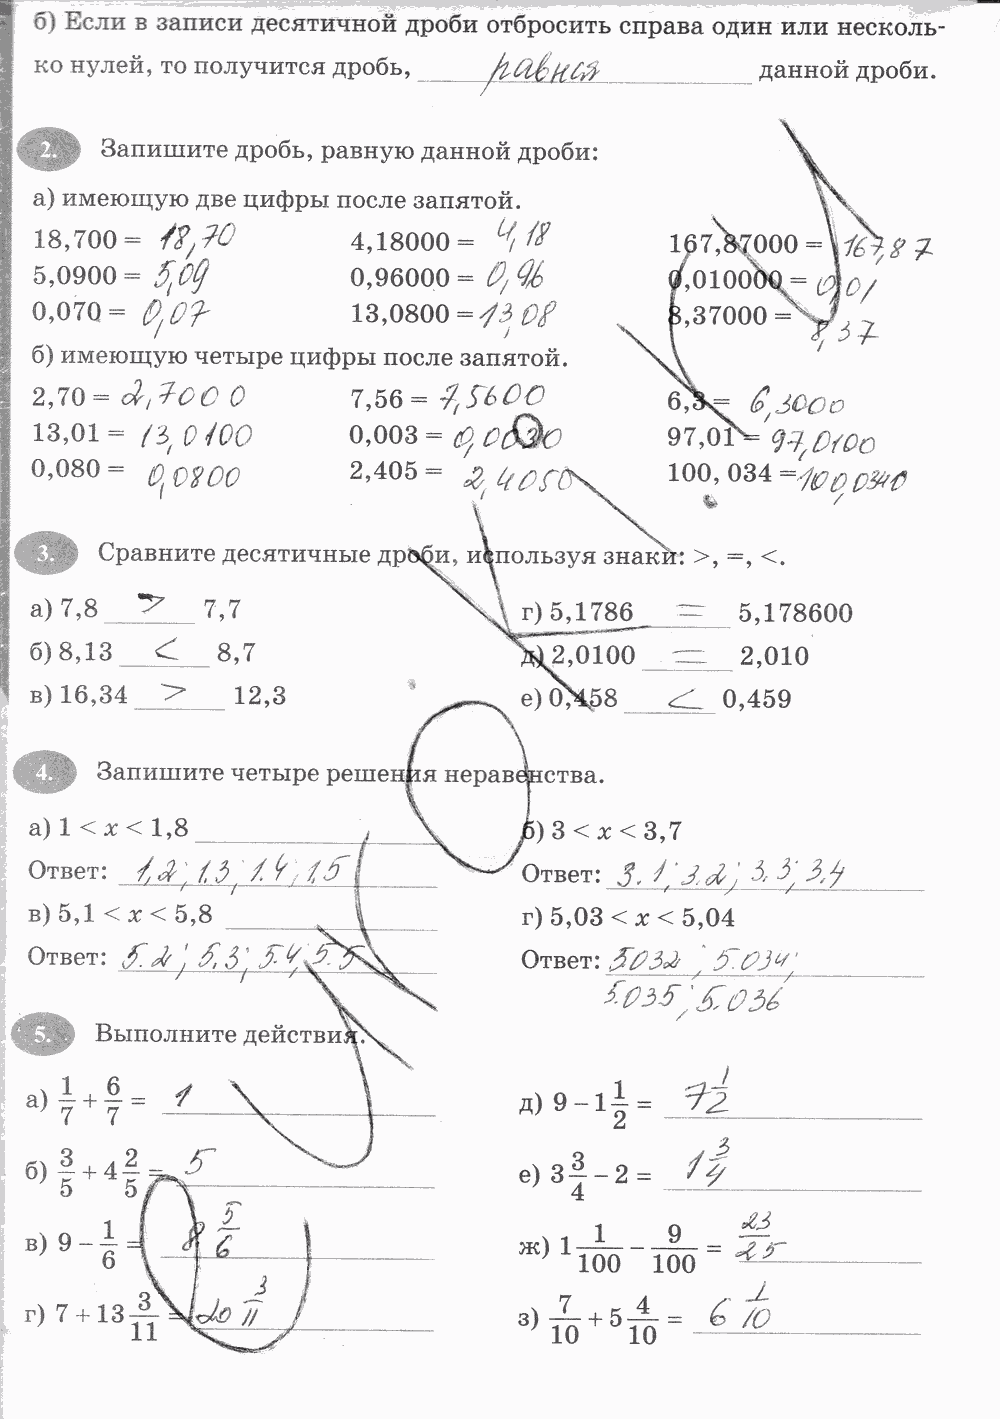 б) Если в записи десятичной дроби отбросить справа один или несколь-
ко нулей, то получится дробь, равная данной дроби.
2. Запишите дробь, равную данной дроби:
а) имеющую две цифры после запятой.
18,700 = 18,70 4,18000 = 4,18 167,87000 = 167,87
5,0900 = 5,09 0,96000 = 0,96 0,010000 = 0,01
0,070 = 0,07 13,0800 = 13,08 8,37000 = 8,37
б) имеющую четыре цифры после запятой.
2,70 = 2,7000 7,56 = 7,5600 6,3 = 6,3000
13,01 = 13,0100 0,003 = 0,0030 97,01 = 97,0100
0,080 = 0,0800 2,405 = 2,4050 100, 034 = 100,0340
3. Сравните десятичные дроби, используя знаки: >, =, <.
а) 7,8 > 7,7 г) 5,1786 = 5,178600
б) 8,13 < 8,7 д) 2,0100 = 2,010
в) 16,34 > 12,3 е) 0,458 < 0,459
4. Запишите четыре решения неравенства.
а) 1 < x < 1,8 б) 3 < x < 3,7
Ответ: 1,2; 1.3; 1.4; 1,5 Ответ: 3.1; 3.2; 3.3; 3.4
в) 5,1 < x < 5,8 г) 5,03 < x < 5,04
Ответ: 5.2; 5.3; 5.4; 5.5 Ответ: 5.032; 5.034;
5.035; 5.036
5. Выполните действия.
а) 1/7 + 6/7 = 1 д) 9 – 1 1/2 = 7 1/2
б) 3/5 + 4 2/5 = 5 е) 3 3/4 – 2 = 1 3/4
в) 9 – 1/6 = 8 5/6 ж) 1 1/100 – 9/100 = 23/25
г) 7 + 13 3/11 = 20 3/11 з) 7/10 + 5 4/10 = 6 1/10